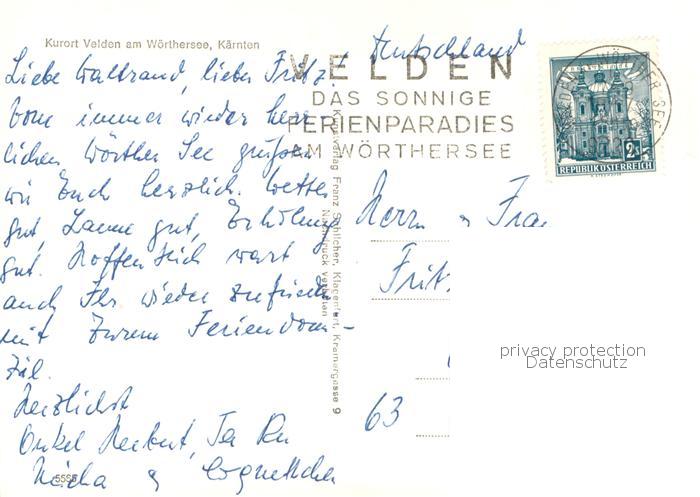 Kurort Velden am Wörthersee, Kärnten
Deutschland
VELDEN
DAS SONNIGE
FERIENPARADIES
AM WÖRTHERSEE
2s
REPUBLIK ÖSTERREICH
Liebe Waltraud, lieber Fritz!
Vom immer wieder herr
lichen Wörther See grüßen
wir Euch herzlich. Wetter
gut, Laune gut, Erholung
gut. Hoffentlich wart
auch Ihr wieder zufrieden
mit Eurem Feriendomi-
zil.
Herzlichst
Onkel Herbert,
Kunstverlag Franz Schilcher, Klagenfurt, Kramergasse 9
Nachdruck verboten
Herrn u Frau
Fritz
63
privacy protection
Datenschutz